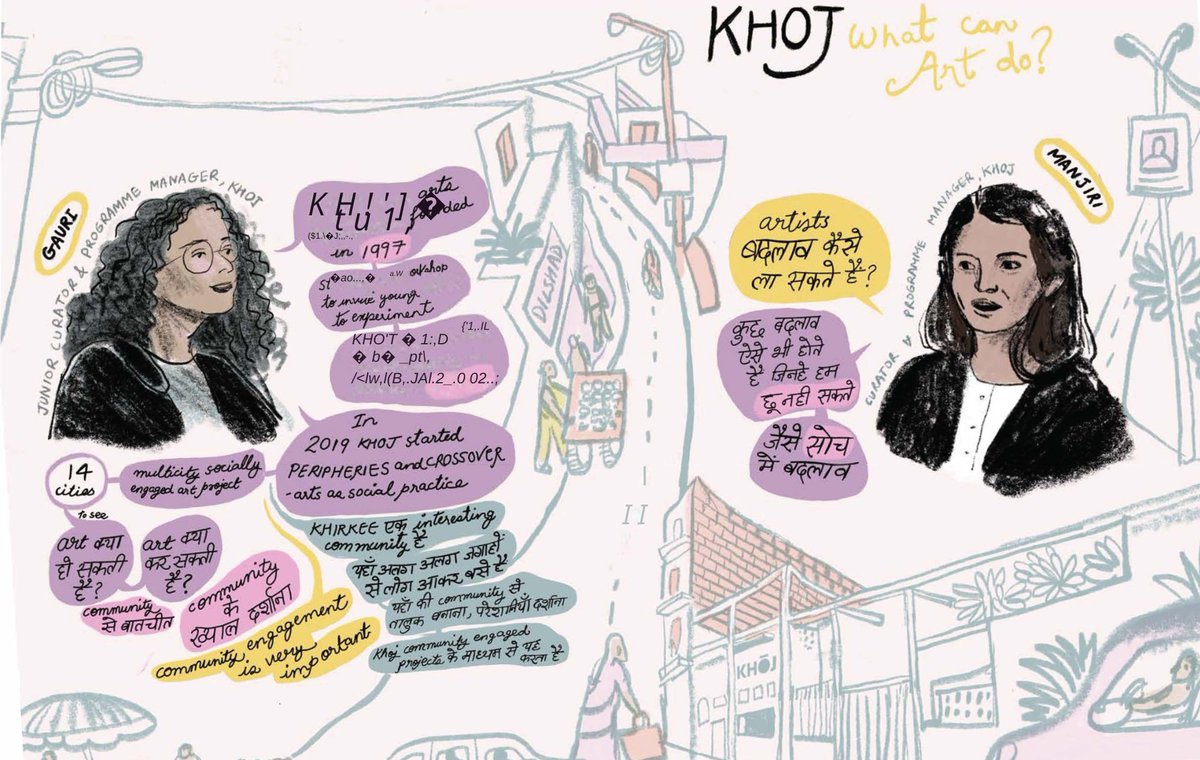 KHOJ What can
Art do?
GAURI
JUNIOR CURATOR & PROGRAMME MANAGER, KHOJ
arts
founded
in 1997
to
young
to experiment
In
2019 KHOJ started
PERIPHERIES and CROSSOVER
-arts as social practice
multicity socially
engaged art project
14
cities
to see
art क्या
हो सकती
है?
art क्या
कर सकती
है?
community
से बातचीत
community
के
ख्याल दर्शाना
community engagement
is very
important
KHIRKEE एक interesting
community है
यहाँ अलग अलग जगाहों
से लोग आकर बसे है
यहाँ की community से
तालुक बनाना, परेशानियाँ दर्शाना
Khoj community engaged
projects के माध्यम से यह
करता है
DILSHAD
MANJIRI
CURATOR & PROGRAMME MANAGER, KHOJ
artists
बदलाव कैसे
ला सकते है?
कुछ बदलाव
ऐसे भी होते
है जिनहे हम
छू नही सकते
जैसे सोच
में बदलाव
II
KHŌJ